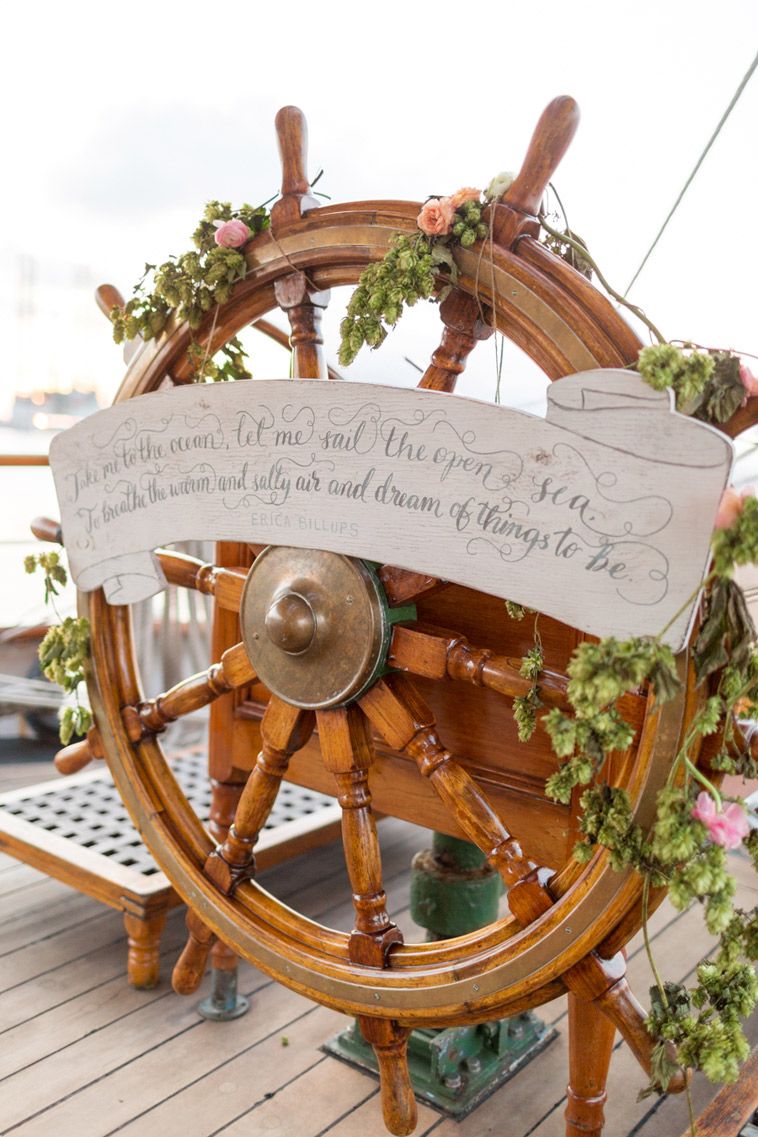 Take me to the ocean, let me sail the open sea.
To breathe the warm and salty air and dream of things to be.
ERICA BILLUPS